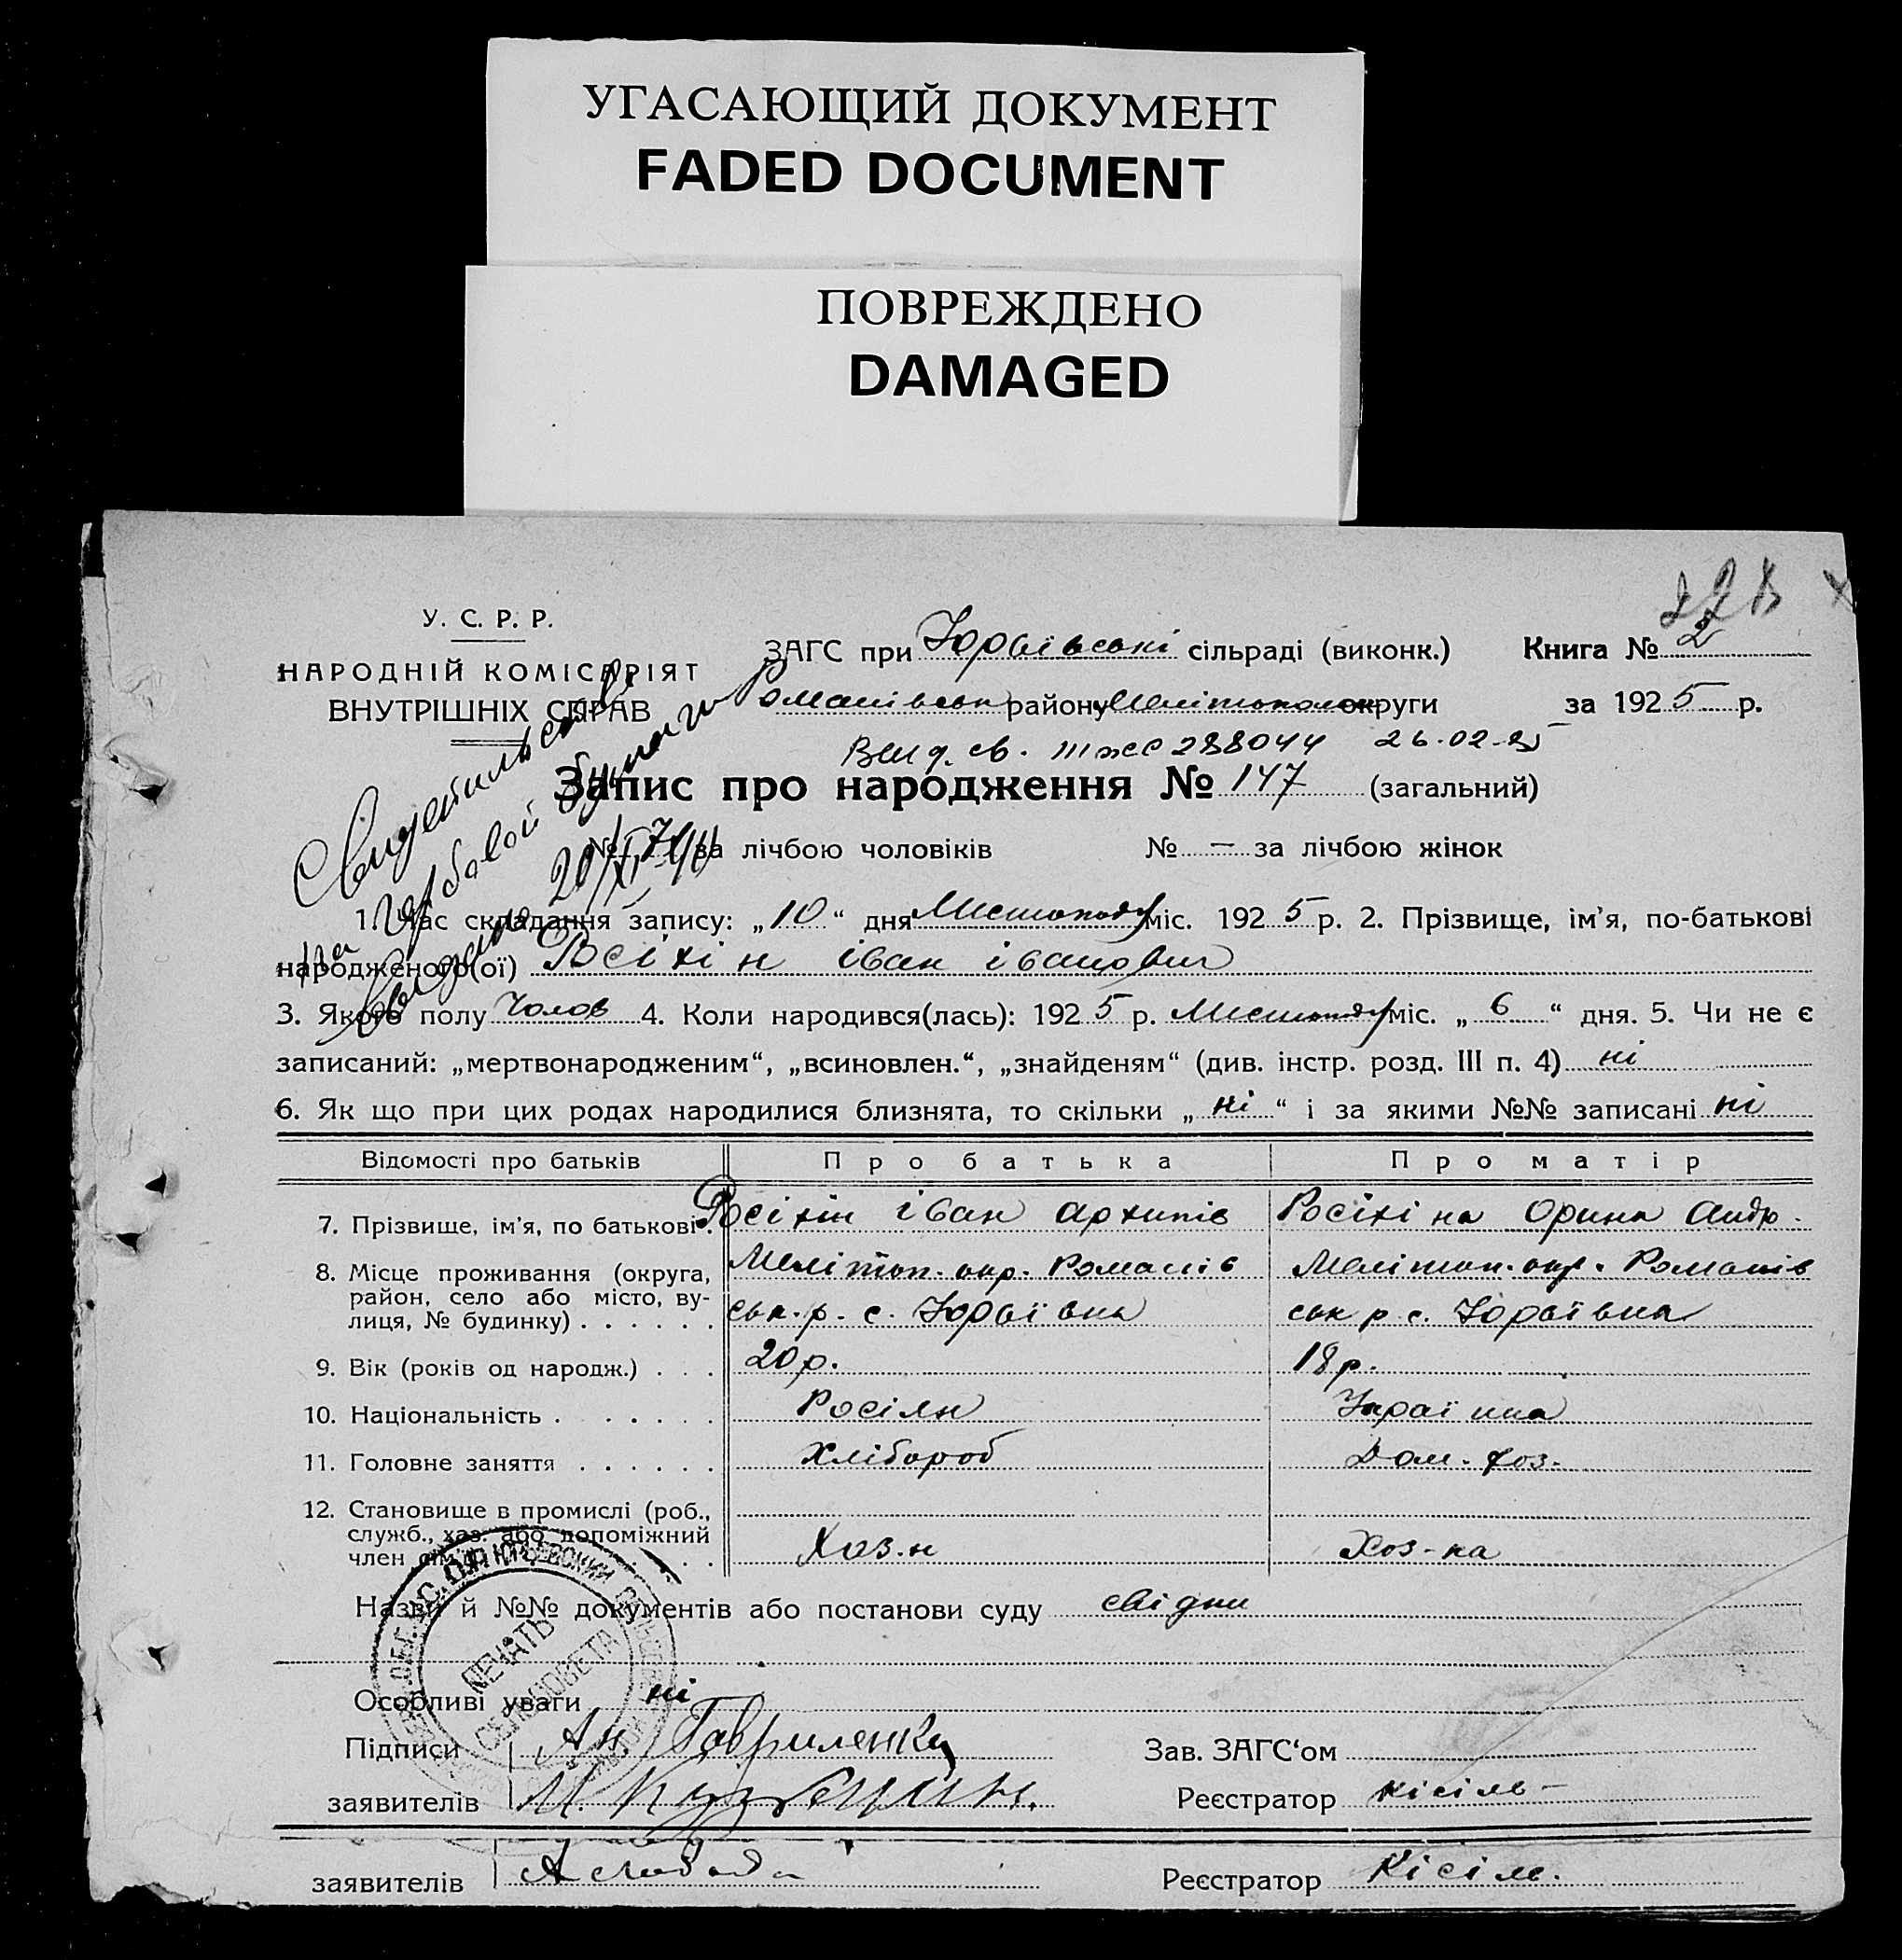 УГАСАЮЩИЙ ДОКУМЕНТ
FADED DOCUMENT
ПОВРЕЖДЕНО
DAMAGED
У. С. Р. Р.
НАРОДНІЙ КОМІСАРІЯТ
ВНУТРІШНІХ СПРАВ
ЗАГС при Юр'ївські сільраді (виконк.) Книга № 2
Романівськ району Мелітопольск округи за 1925 р.
288044 26.02.85
Запис про народження № 147 (загальний)
№ 71 за лічбою чоловіків № — за лічбою жінок
Свидетельство
на гербовой бумаге
выдано 20/XI
1. Час складання запису: „10“ дня Листопаду міс. 1925 р. 2. Прізвище, ім'я, по-батькові
народженого(ої) Росіхін іван іванович
3. Якого полу Чолов 4. Коли народився(лась): 1925 р. Листопаду міс. „6“ дня. 5. Чи не є
записаний: „мертвонародженим“, „всиновлен.“, „знайденям“ (див. інстр. розд. III п. 4) ні
6. Як що при цих родах народилися близнята, то скільки „ні“ і за якими №№ записані ні
Відомості про батьків Про батька Про матір
7. Прізвище, ім'я, по батькові. Росіхін іван архипів Росіхіна Орина Андр.
8. Місце проживання (округа, Меліտоп. окр. Романів Меліտоп. окр. Романів
район, село або місто, ву-
лиця, № будинку) ськ. р. с. Юр'ївка ськ р с. Юр'ївка
9. Вік (років од народж.) 20 р. 18 р.
10. Національність Росіян Украінка
11. Головне заняття Хлібороб Дом. хоз.
12. Становище в промислі (роб.,
служб., хаз. або допоміжний
член сім'ї) Хоз.н Хоз-ка
Назви й №№ документів або постанови суду свідки
Особливі уваги ні
ПЕЧАТЬ
СЕЛЬСОВЕТА
Підписи Ан. Гавриленко Зав. ЗАГС'ом
заявителів Реєстратор Кісіль
заявителів Реєстратор Кісіль.